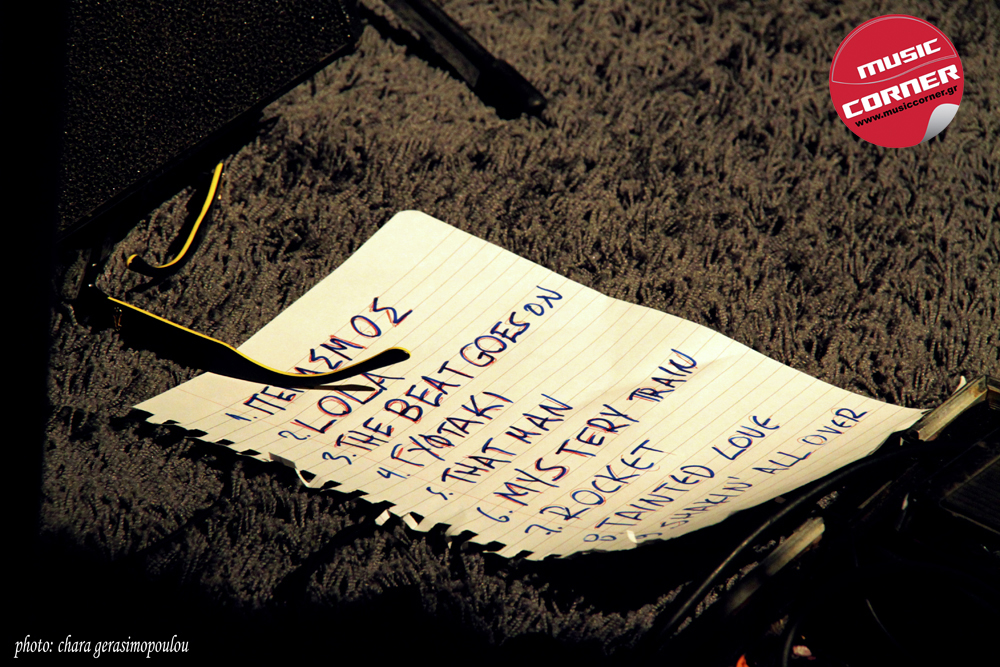 MUSIC
CORNER
www.musiccorner.gr
1. ΠΕΙΡΑΣΜΟΣ
2. LODA
3. THE BEAT GOES ON
4. ΓΥΦΤΑΚΙ
5. THAT MAN
6. MYSTERY TRAIN
7. ROCKET
8 TAINTED LOVE
SHAKIN' ALL OVER
photo: chara gerasimopoulou